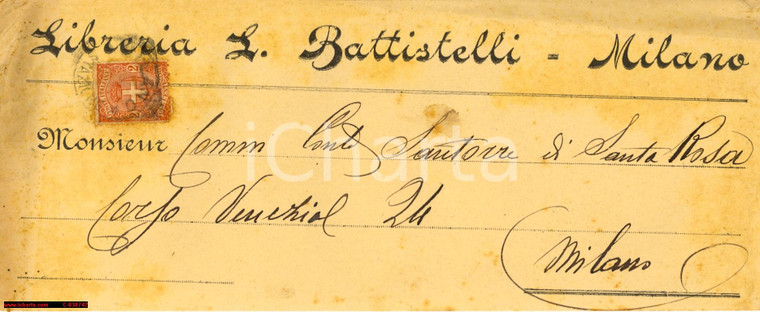 Libreria L. Battistelli - Milano
Monsieur Comm Conte Santorre di Santa Rosa
Corso Venezia 24
Milano
iCharta
www.icharta.com